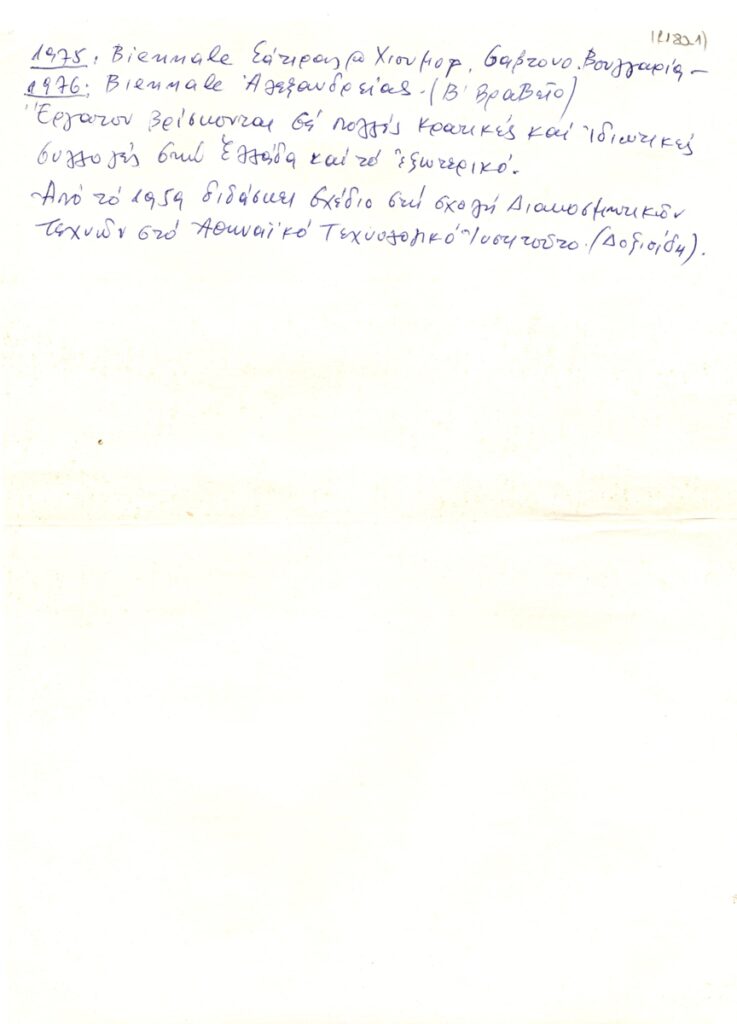 1975. Biennale Σάτιρας Χιουμορ. Γαβτονο. Βουλγαρία –
1976: Biennale Ἀλεξανδρείας. (Β' Βραβεῖο)
Ἔργατου βρίσκονται σέ πολλές κρατικές καί ἰδιωτικές
συλλογές στήν Ἑλλάδα καί τό ἐξωτερικό.
Ἀπό τό 1959 διδάσκει σχέδιο στή σχολή Διακοσμητικῶν
Τεχνῶν στό Ἀθηναϊκό Τεχνολογικό Ἰνστιτοῦτο. (Δοξιάδη).